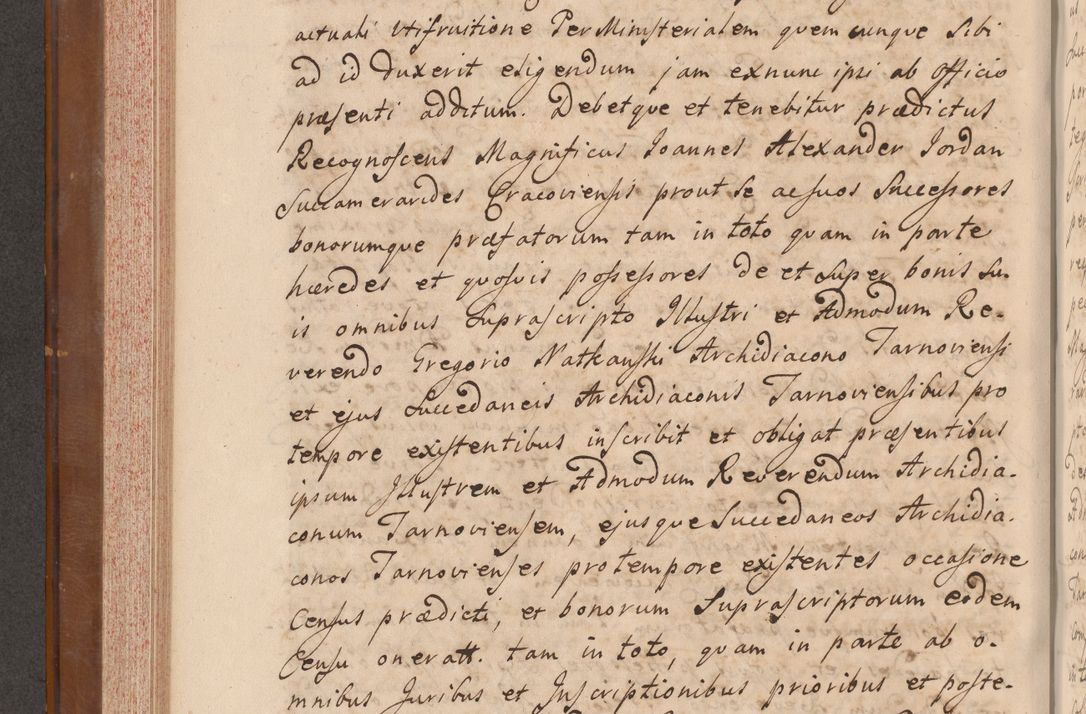 actuali utifruitione Per Ministerialem quem cunque Sibi
ad id duxerit eligendum jam exnunc ipsi ab Officio
præsenti additum. Debetque et tenebitur prædictus
Recognoscens Magnificus Joannes Alexander Jordan
Succamerarides Cracoviensis prout se ac suos Successores
bonorumque præfatorum tam in toto quam in parte
hæredes et quosvis possessores de et super bonis su-
is omnibus suprascripto Illustri et Admodum Re-
verendo Gregorio Natkanski Archidiacono Tarnoviensi
et ejus Succedaneis Archidiaconis Tarnoviensibus pro
tempore existentibus inscribit et obligat præsentibus
ipsum Illustrem et Admodum Reverendum Archidia-
conum Tarnoviensem, ejusque Succedaneos Archidia-
conos Tarnovienses pro tempore existentes occasione
Census prædicti, et bonorum suprascriptorum eodem
Censu oneratt. tam in toto, quam in parte ab o-
mnibus Juribus et Inscriptionibus prioribus et poste-